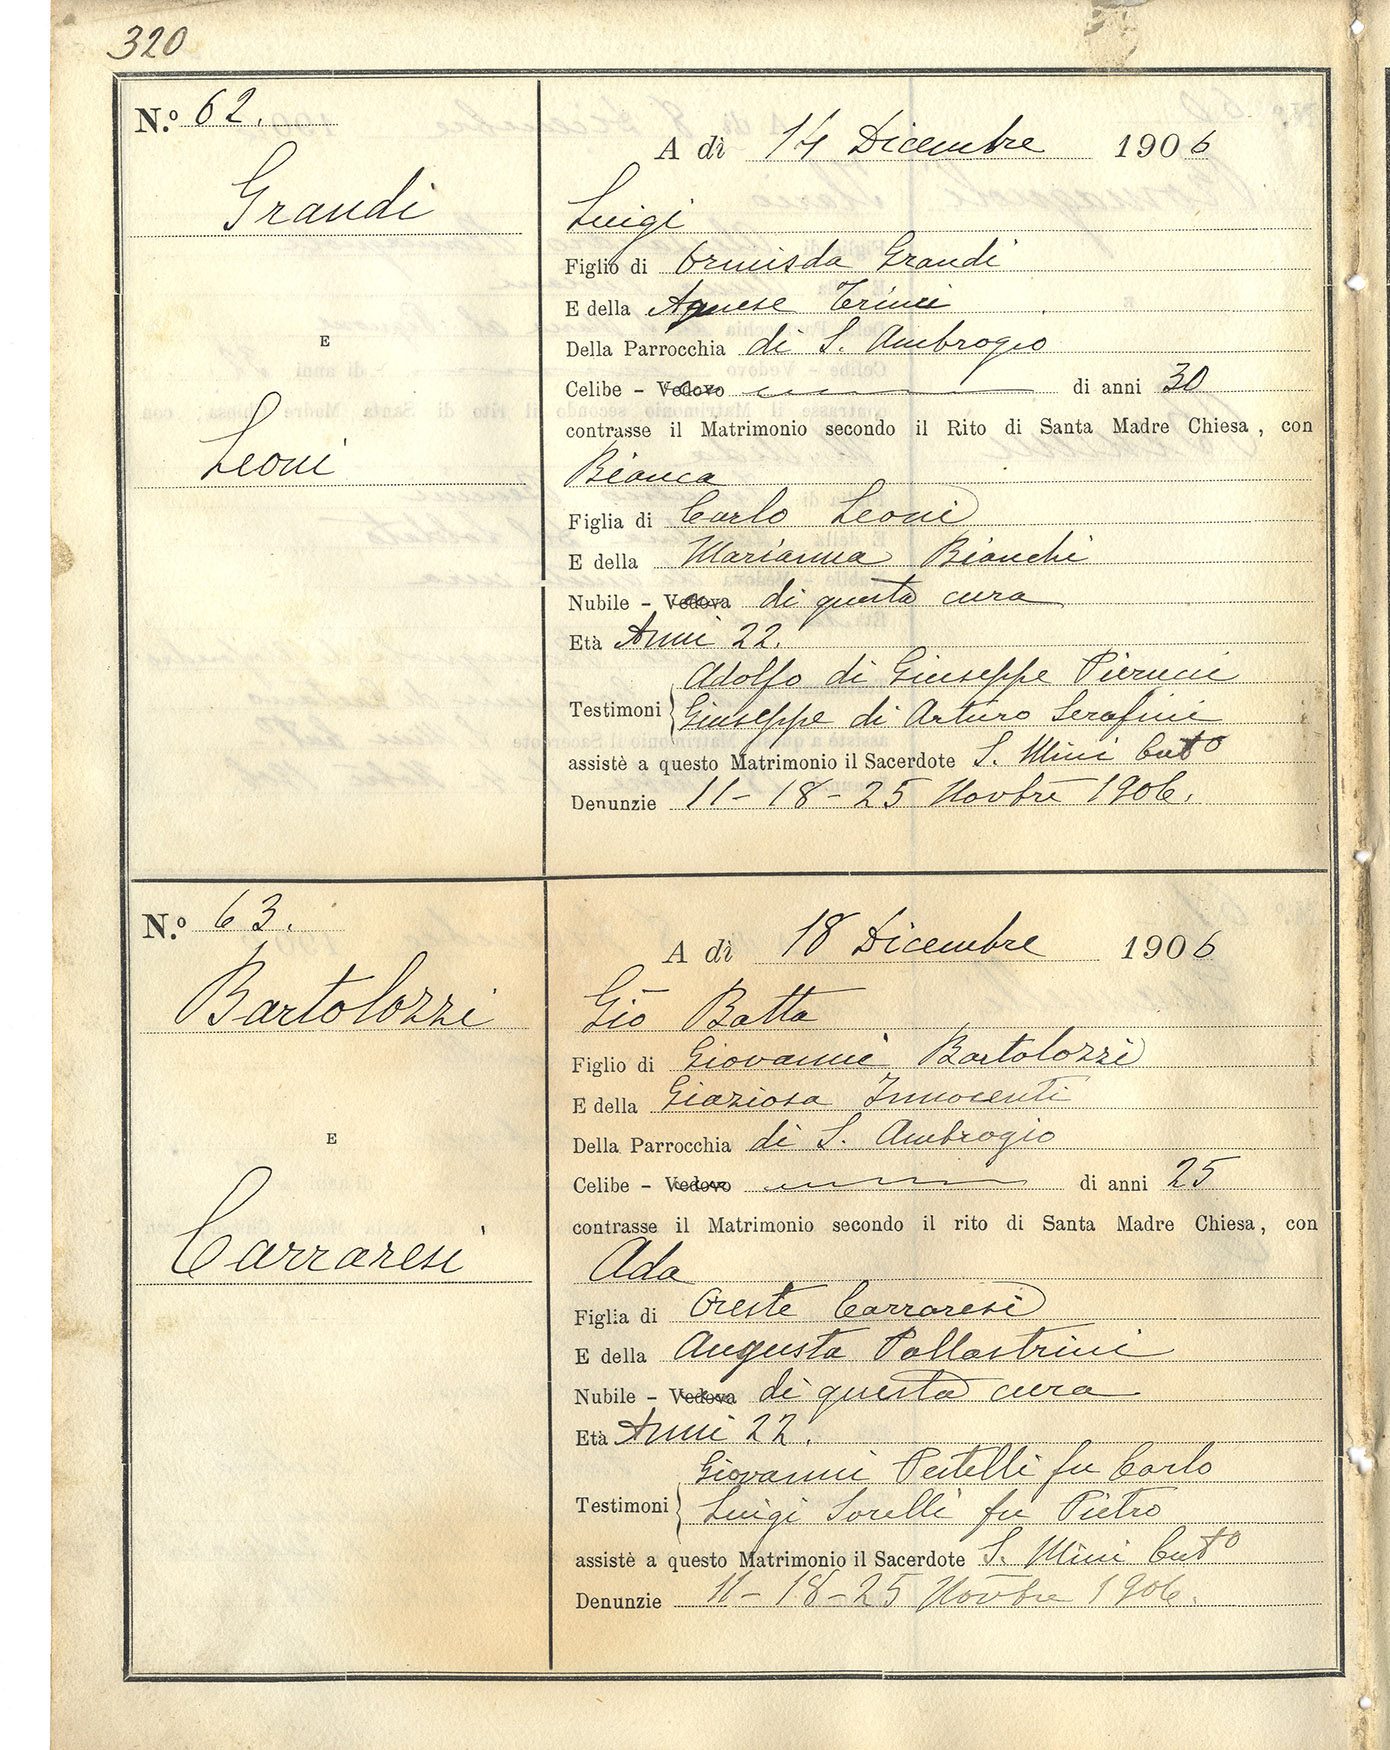 320
N.º 62.
Grandi
E
Leoni
A dì 14 Dicembre 1906
Luigi
Figlio di Ormisda Grandi
E della Agnese Trinci
Della Parrocchia di S. Ambrogio
Celibe - Vedovo di anni 30
contrasse il Matrimonio secondo il Rito di Santa Madre Chiesa, con
Bianca
Figlia di Carlo Leoni
E della Marianna Bianchi
Nubile - Vedova di questa cura
Età Anni 22.
Adolfo di Giuseppe Pierucci
Testimoni Giuseppe di Arturo Serafini
assistè a questo Matrimonio il Sacerdote S. Mini Cutº
Denunzie 11 - 18 - 25 Novbre 1906.
N.º 63.
Bartolozzi
E
Carraresi
A dì 18 Dicembre 1906
Gio Batta
Figlio di Giovanni Bartolozzi
E della Giaziosa Innocenti
Della Parrocchia di S. Ambrogio
Celibe - Vedovo di anni 25
contrasse il Matrimonio secondo il rito di Santa Madre Chiesa, con
Ada
Figlia di Oreste Carraresi
E della Augusta Pallastrini
Nubile - Vedova di questa cura
Età Anni 22.
Giovanni fu Carlo
Testimoni Luigi Sorelli fu Pietro
assistè a questo Matrimonio il Sacerdote S. Mini Cutº
Denunzie 11 - 18 - 25 Novbre 1906.